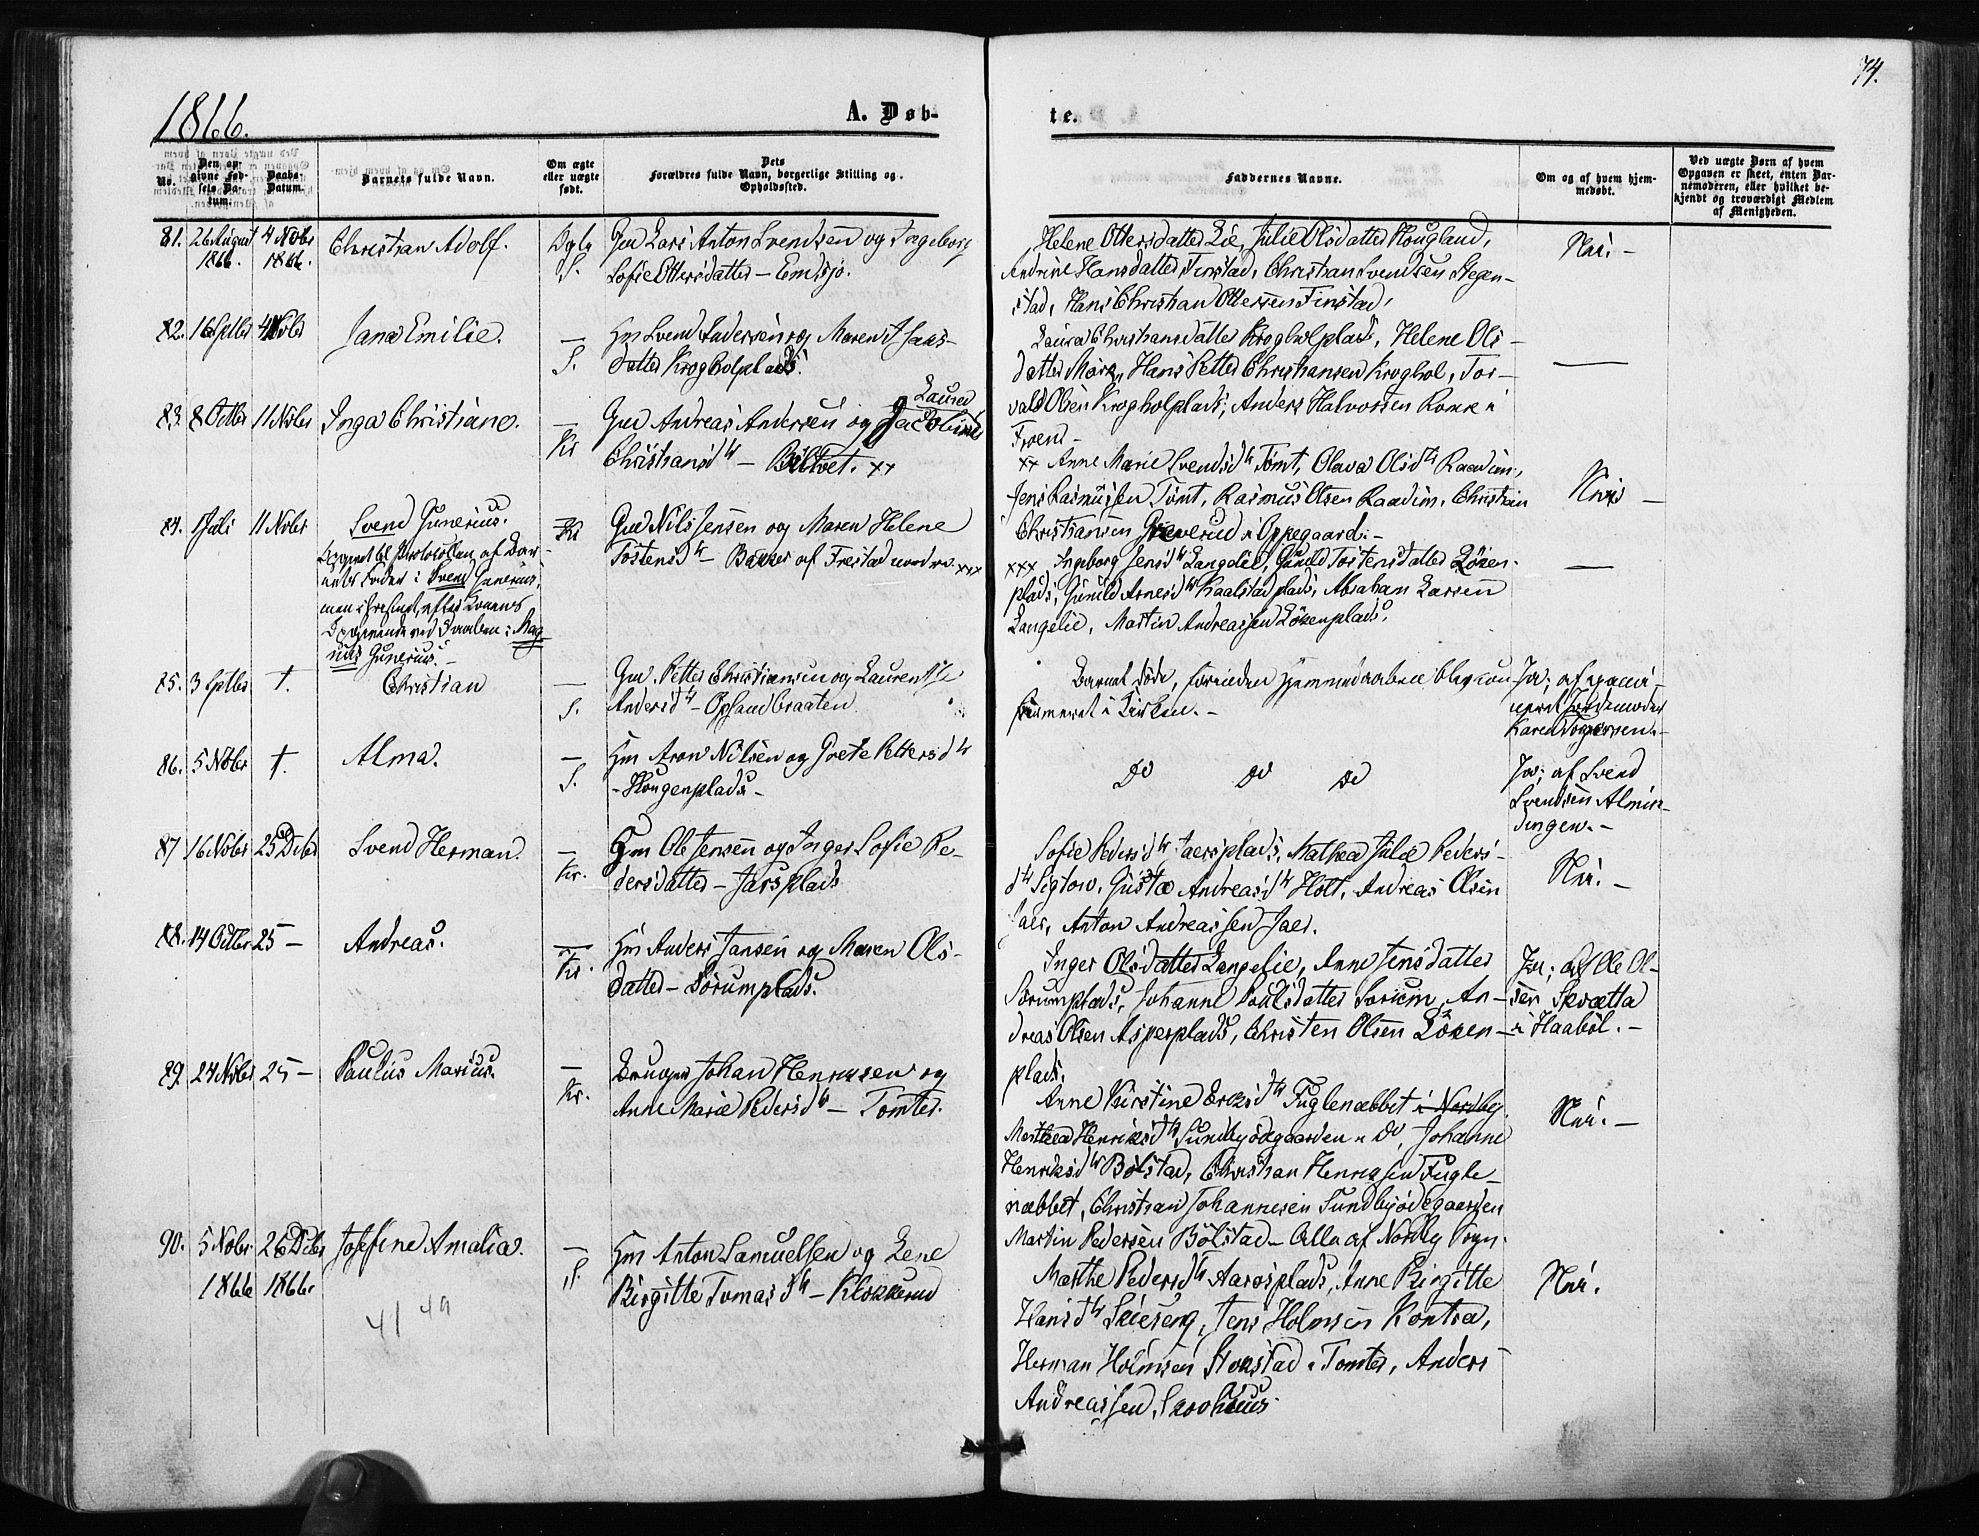 74.
1866.
A. Døb-
te.
No.
Den op-
givne Fød-
sels Da-
tum.
Daabs-
Datum.
Barnets fulde Navn.
Om ægte
eller uægte
født.
Dets
Forældres fulde Navn, borgerlige Stilling og
Opholdssted.
Faddernes Navne.
Om og af hvem hjem-
medøbt.
Ved uægte Børn af hvem
Opgaven er skeet, enten Bar-
nemoderen, eller hvilket be-
kjendt og troværdigt Medlem
af Menigheden.
81. 26 August 4 Nobr Christian Adolf.
1866. 1866.
S.
Lars Anton Svendsen og Ingeborg
Sofie Ottersdatter - Emsjø.
Helene Ottersdatter Lie, Julie Olsdatter Hougland,
Andrine Hansdatter Finstad, Christian Svendsen Stegen-
stad, Hans Christian Ottersen Finstad,
Nei. -
82. 16 Sptbr 4 Nobr Jana Emilie. —
S.
Hm Svend Andersen og Maren Isaks-
datter Krogholplads.
Laura Christiansdatter Krogholplads, Helene Ols-
datter Mørk, Hans Petter Christiansen Kroghol, Tor-
vald Olsen Krogholplads, Anders Halvorsen Ronne i
Froen -
—
83. 8 Octbr 11 Nobr Inga Christiane. —
Kr
Gud Andreas Andersen og Jacobine
Laura
Christiansdtr - Biltvet. xx
xx Anne Marie Svendsdtr Tomt, Olava Olsdtr Raadim,
Jens Rasmussen Tomt, Rasmus Olsen Raadim, Christian
Christiansen Greverud i Oppegaard. -
Nei -
84. 1 Juli 11 Nobr Svend Gunerius. —
Kr
Opgivet til Protokollen af Bar-
nets Fader: Svend Gunerius,
men
ved Daaben: Mag-
nus Gunerius. -
Gud Nils Jensen og Maren Helene
Tostensdtr - Bakker af Frestad nordre. xxx
xxx Ingeborg Jensdtr Langelie, Gunild Tostensdatter Løken-
plads, Gunild Arnesdtr Kaalstadplads, Abraham Larsen
Langelie, Martin Andreassen Løkenplads.
—
85. 3 Sptbr †. Christian —
S.
Gud. Petter Christiansen og Laurentse
Andersdtr - Opsandbraaten.
Barnet døde, forinden Hjemmedaaben blev con-
firmeret i Kirken. -
Ja; af exami-
neret Jordemoder
Karen Torgersen. -
86. 5 Nobr †. Alma. —
S.
Hm Aron Nilsen og Grete Pettersdtr
- Hougenplads -
Do Do Do
Ja; af Svend
Svendsen Almin-
dingen. -
87 16 Nobr 25 Dcbr Svend Herman. —
Kr.
Hm Ole Jensen og Inger Sofie Pe-
dersdatter - Jærsplads
Sofie Pedersdtr Jaersplads, Mathea Julie Peders-
dtr Sigtow, Gusta Andreasdtr Holt, Andreas Olsen
Jaer, Anton Andreassen Jaer.
Nei. -
88. 14 Octbr 25 - Andreas. —
Kr.
Hm Anders Jansen og Maren Ols-
datter - Sorumplads.
Inger Olsdatter Langelie, Anne Jensdatter
Sorumplads, Johanne Poulsdatter Sorum, An-
dreas Olsen Asperplads, Christen Olsen Løken-
plads.
Ja; af Ole Ol-
sen Skvætta
i Haabøl. -
89. 24 Nobr 25 - Paulus Marius. —
Kr.
Bruger Johan Henriksen og
Anne Marie Pedersdtr - Tomter.
Anne Kirstine Eriksdtr Fuglenæbbet i Nordby,
Marthea Henriksdtr Sundbyødegaarden i Do, Johanne
Henriksdtr Bølstad, Christian Henriksen Fugle-
næbbet, Christian Johannesen Sundbyødegaarden
Martin Pedersen Bølstad - Alle af Nordby Sogn.
Nei. -
90. 5 Nobr 26 Dcbr Josefine Amalia. —
1866 1866.
S.
41 49
Hm Anton Samuelsen og Lene
Birgitte Tomasdtr - Klokkerud
Marthe Pedersdtr Aarosplads, Anne Birgitte
Hansdtr Skieseng, Jens Holmsen Kontra,
Herman Holmsen Stokstad i Tomter, Anders
Andreassen, Skovhuus.
Nei.